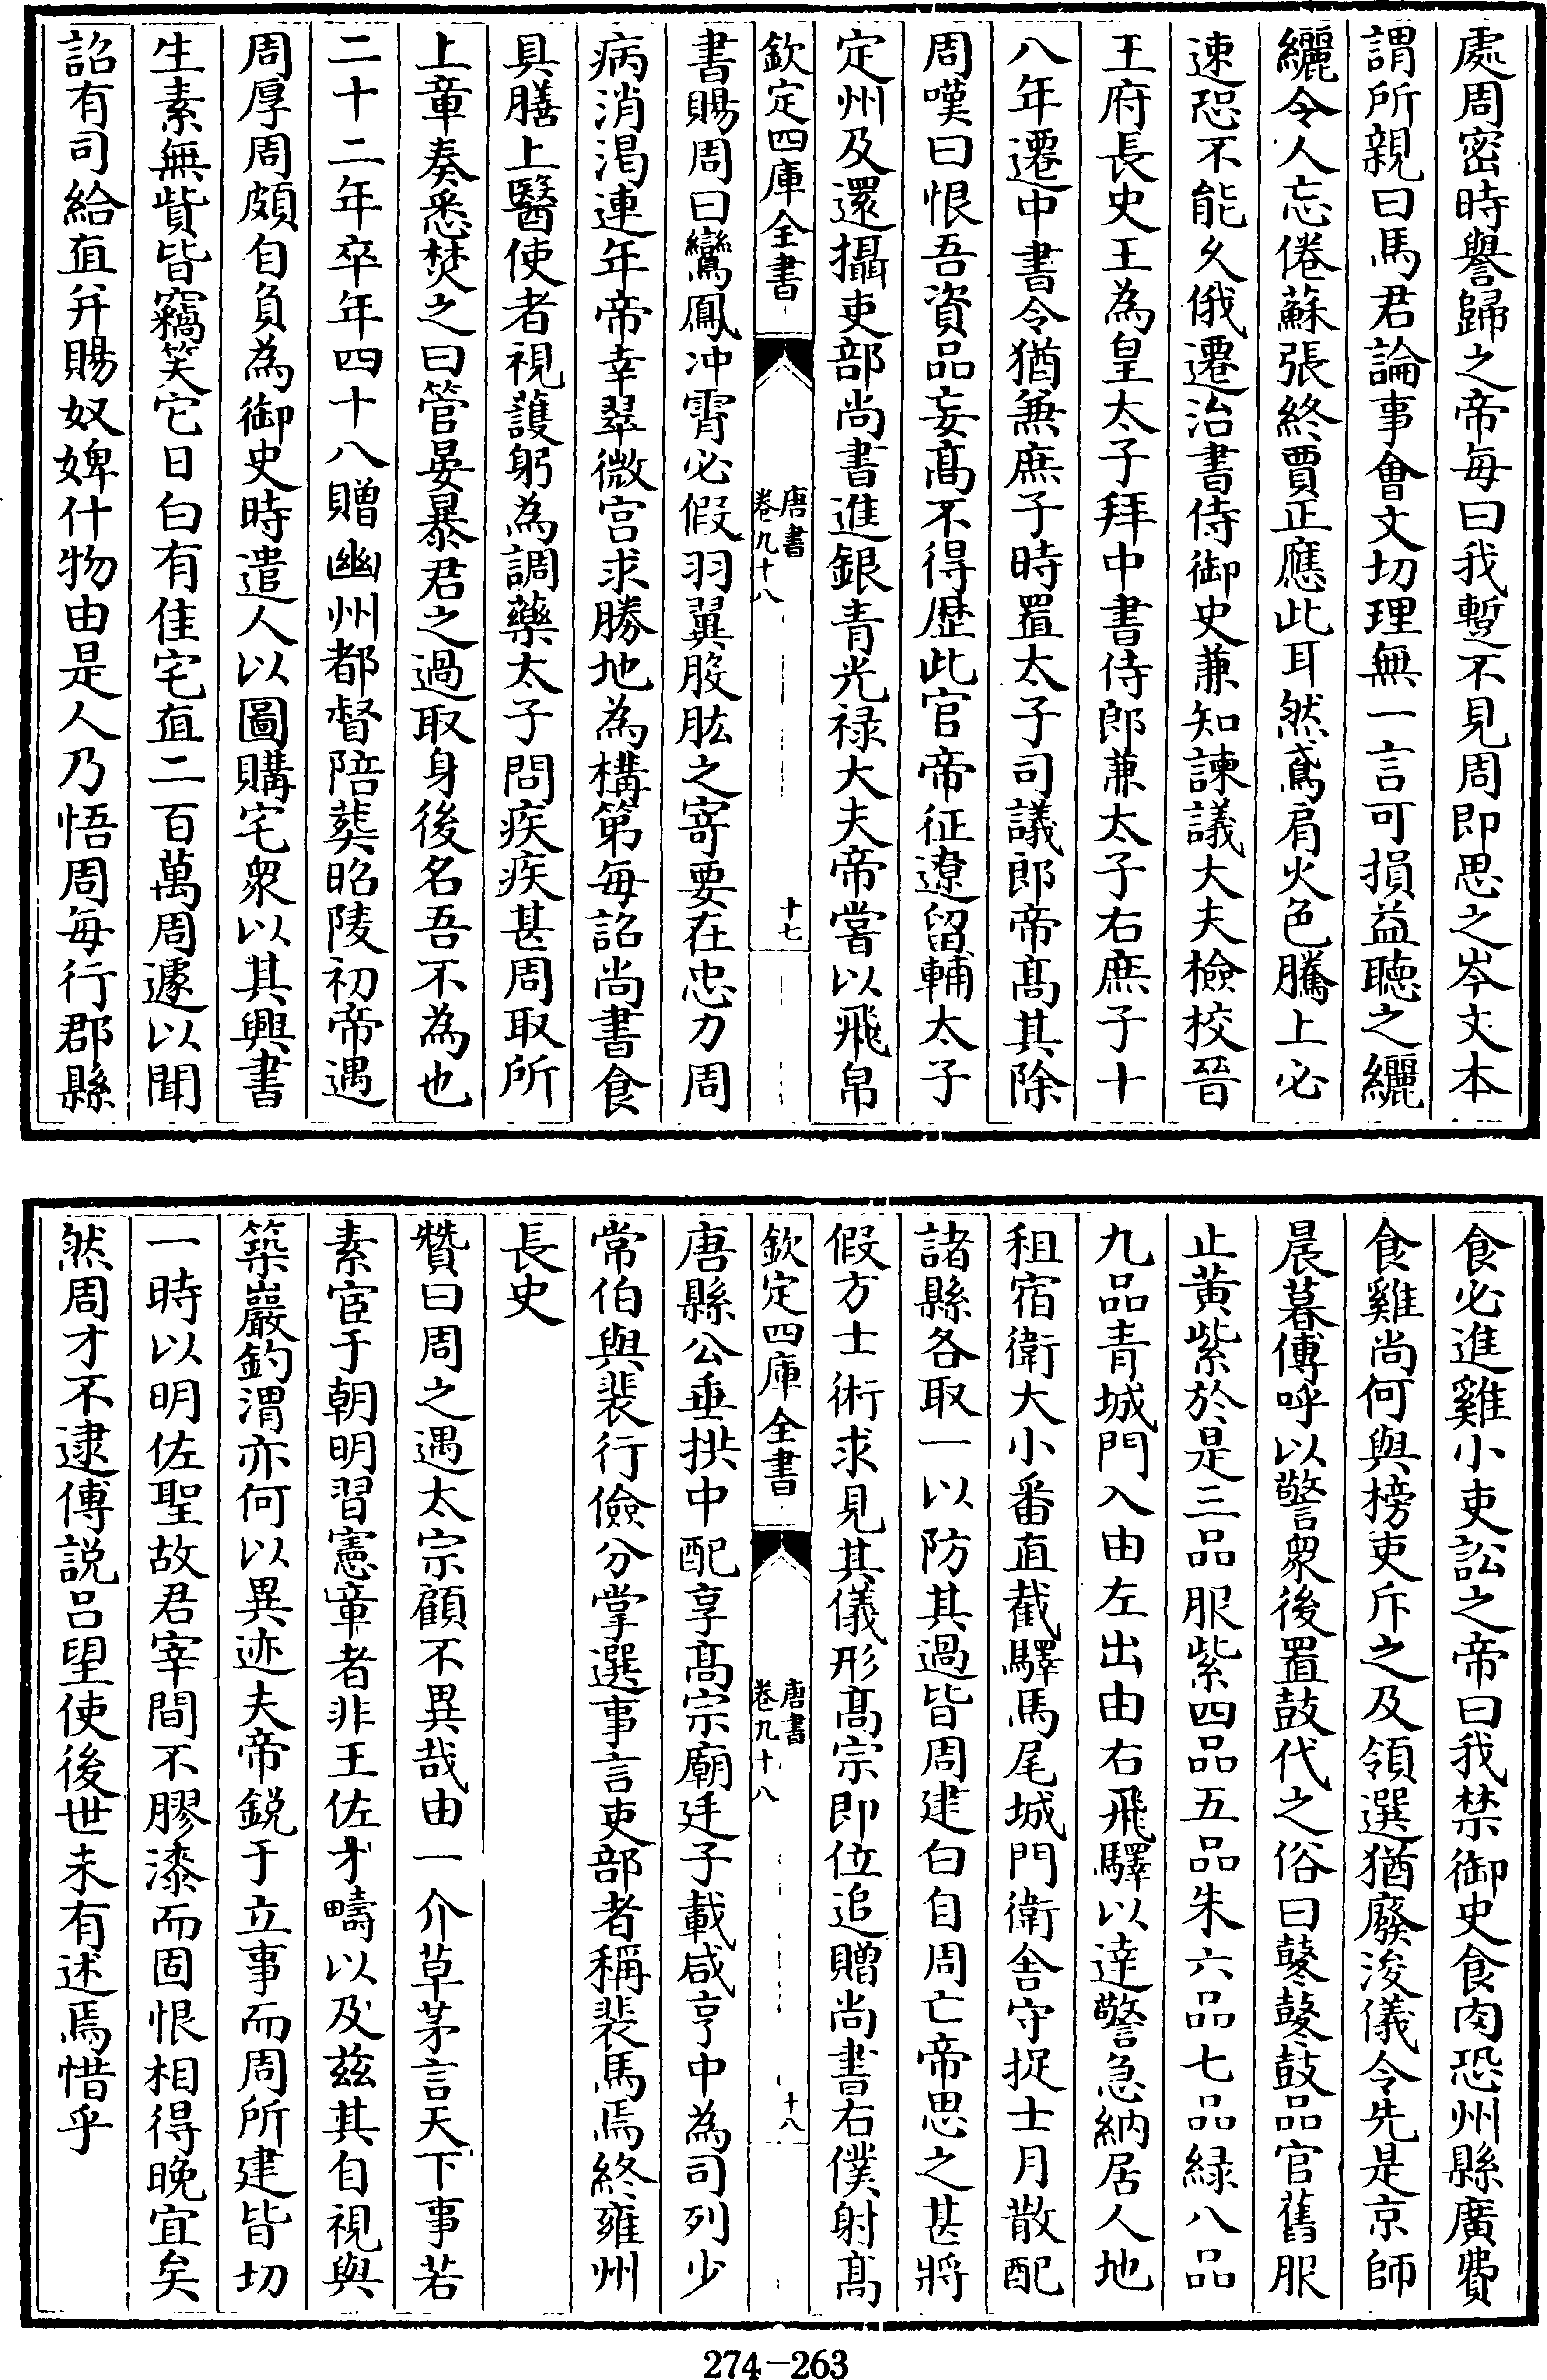 處周密時譽歸之帝每曰我暫不見周即思之岑文本
謂所親曰馬君論事會文切理無一言可損益聽之纚
纚令人忘倦蘇張終賈正應此耳然鳶肩火色騰上必
速恐不能乆俄遷治書侍御史兼知諫議大夫檢校晉
王府長史王為皇太子拜中書侍郎兼太子右庶子十
八年遷中書令猶兼庶子時置太子司議郎帝髙其除
周嘆曰恨吾資品妄髙不得歴此官帝征遼留輔太子
定州及還攝吏部尚書進銀青光禄大夫帝嘗以飛帛
欽定四庫全書
唐書
卷九十八
十七
書賜周曰鸞鳳冲霄必假羽翼股肱之寄要在忠力周
病消渴連年帝幸翠微宫求勝地為構第每詔尚書食
具膳上醫使者視護躬為調藥太子問疾疾甚周取所
上章奏悉焚之曰管晏暴君之過取身後名吾不為也
二十二年卒年四十八贈幽州都督陪葬昭陵初帝遇
周厚周頗自負為御史時遣人以圖購宅衆以其興書
生素無貲皆竊笑它日白有佳宅直二百萬周遽以聞
詔有司給直并賜奴婢什物由是人乃悟周每行郡縣
食必進雞小吏訟之帝曰我禁御史食肉恐州縣廣費
食雞尚何與榜吏斥之及領選猶廢浚儀令先是京師
晨暮傅呼以警衆後置鼓代之俗曰鼕鼕鼓品官舊服
止黄紫於是三品服紫四品五品朱六品七品緑八品
九品青城門入由左出由右飛驛以達警急納居人地
租宿衛大小番直截驛馬尾城門衛舍守捉士月散配
諸縣各取一以防其過皆周建白自周亡帝思之甚將
假方士術求見其儀形髙宗即位追贈尚書右僕射髙
欽定四庫全書
唐書
卷九十八
十八
唐縣公垂拱中配享髙宗廟廷子載咸亨中為司列少
常伯與裴行儉分掌選事言吏部者稱裴馬焉終雍州
長史
贊曰周之遇太宗顧不異哉由一介草茅言天下事若
素宦于朝明習憲章者非王佐才疇以及兹其自視與
築巖釣渭亦何以異迹夫帝鋭于立事而周所建皆切
一時以明佐聖故君宰間不膠漆而固恨相得晚宜矣
然周才不逮傅説吕望使後世未有述焉惜乎
274-263